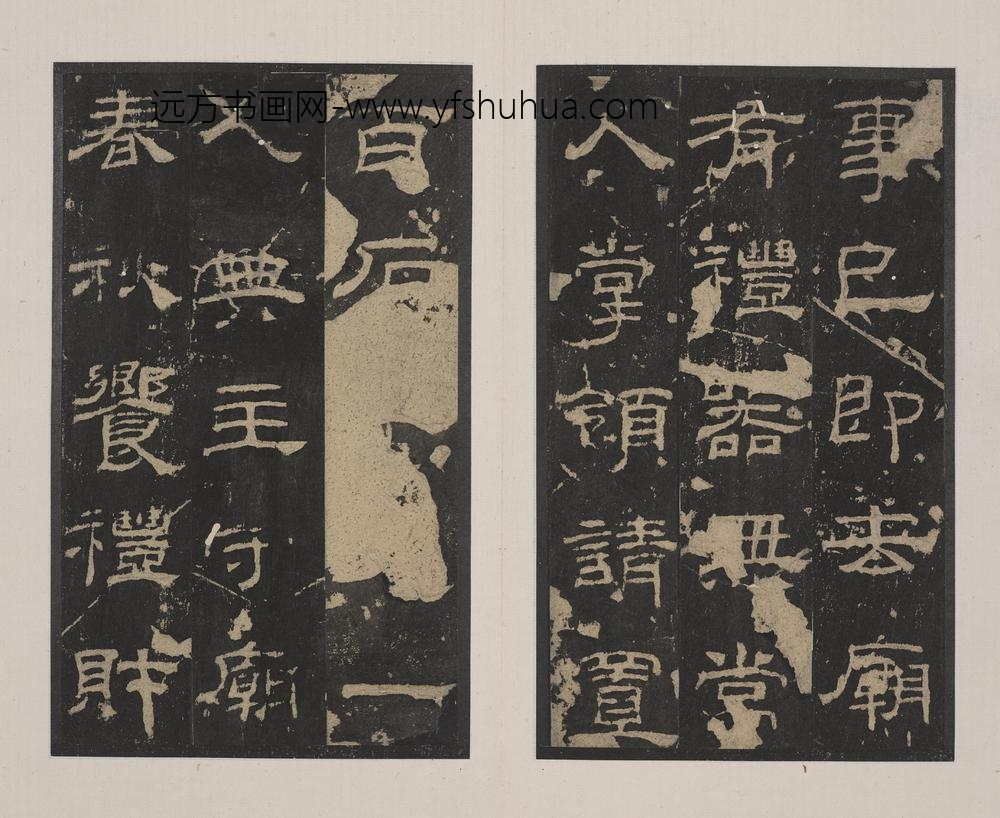 远方书画网-www.yfshuhua.com
事已即去廟
有禮器無常
人掌領請置
百石 一
人典主守廟
春秋饗禮財